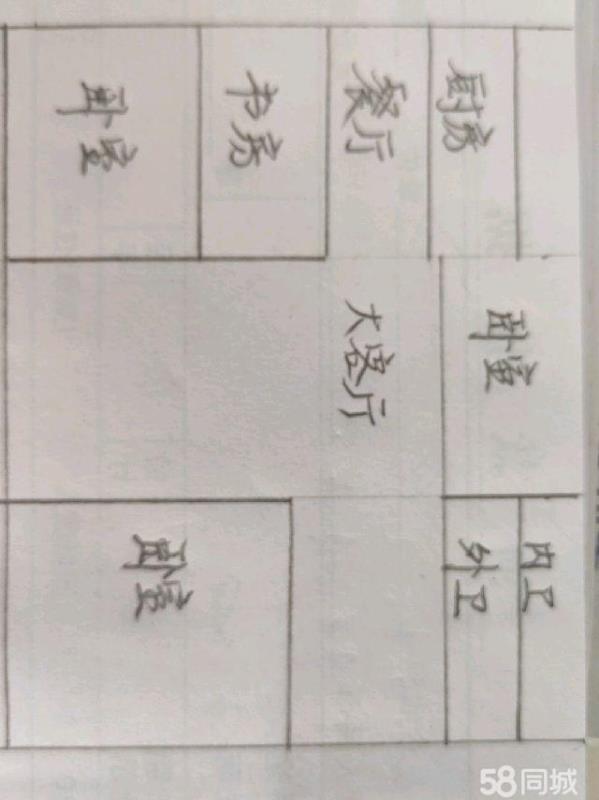 卧室
书房
餐厅
厨房
大客厅
卧室
卧室
外卫
内卫
58同城